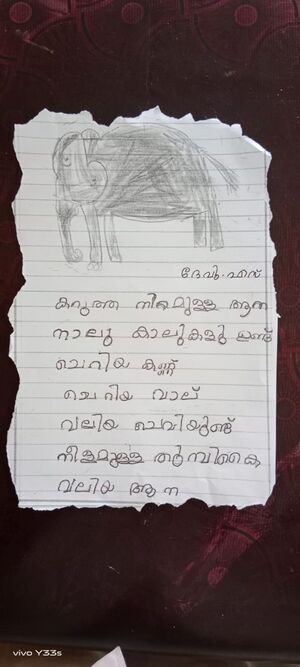 ദേവൂ. എസ്
കറുത്ത നിറമുള്ള ആന
നാലു കാലുകളു ഉണ്ട്
ചെറിയ കണ്ണ്
ചെറിയ വാല്
വലിയ ചെവിയുണ്ട്
നീളമുള്ള തുമ്പികൈ
വലിയ ആന
vivo Y33s